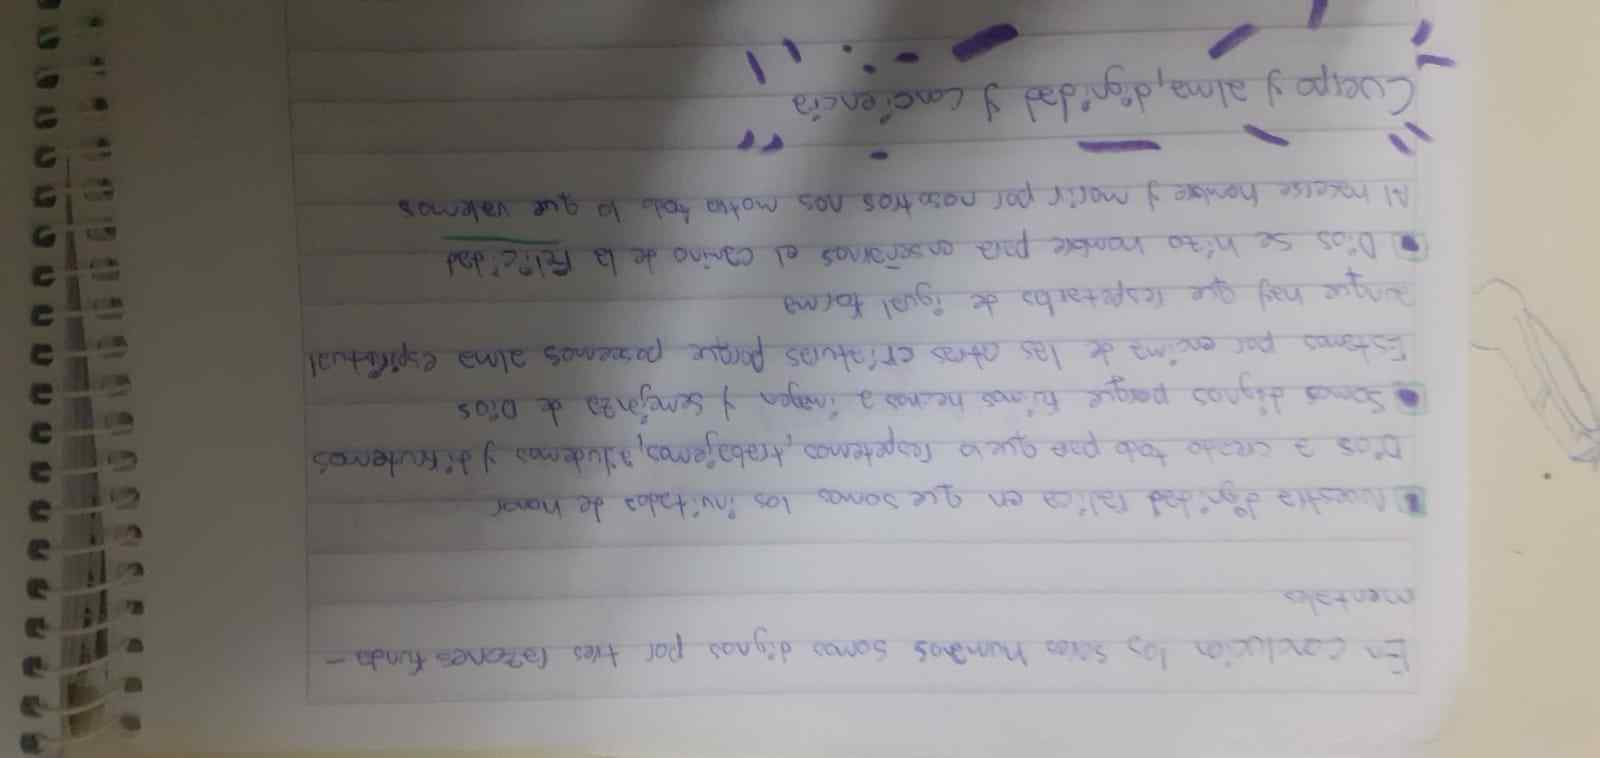 En conclucion los seres humanos somos dignos por tres razones funda-
mentales
Nuestra dignidad radica en que somos los invitados de honor
Dios a creado todo para que lo respetemos, trabajemos, ayudemos y disfrutemos
Somos dignos porque fuimos hechos a imagen y semejanza de Dios
Estamos por encima de las otras criaturas porque poseemos alma espiritual
aunque hay que respetarlos de igual forma
Dios se hizo hombre para enseñarnos el camino de la Felicidad
Al hacerse hombre y morir por nosotros nos motra todo lo que valemos
Cuerpo y alma, dignidad y conciencia